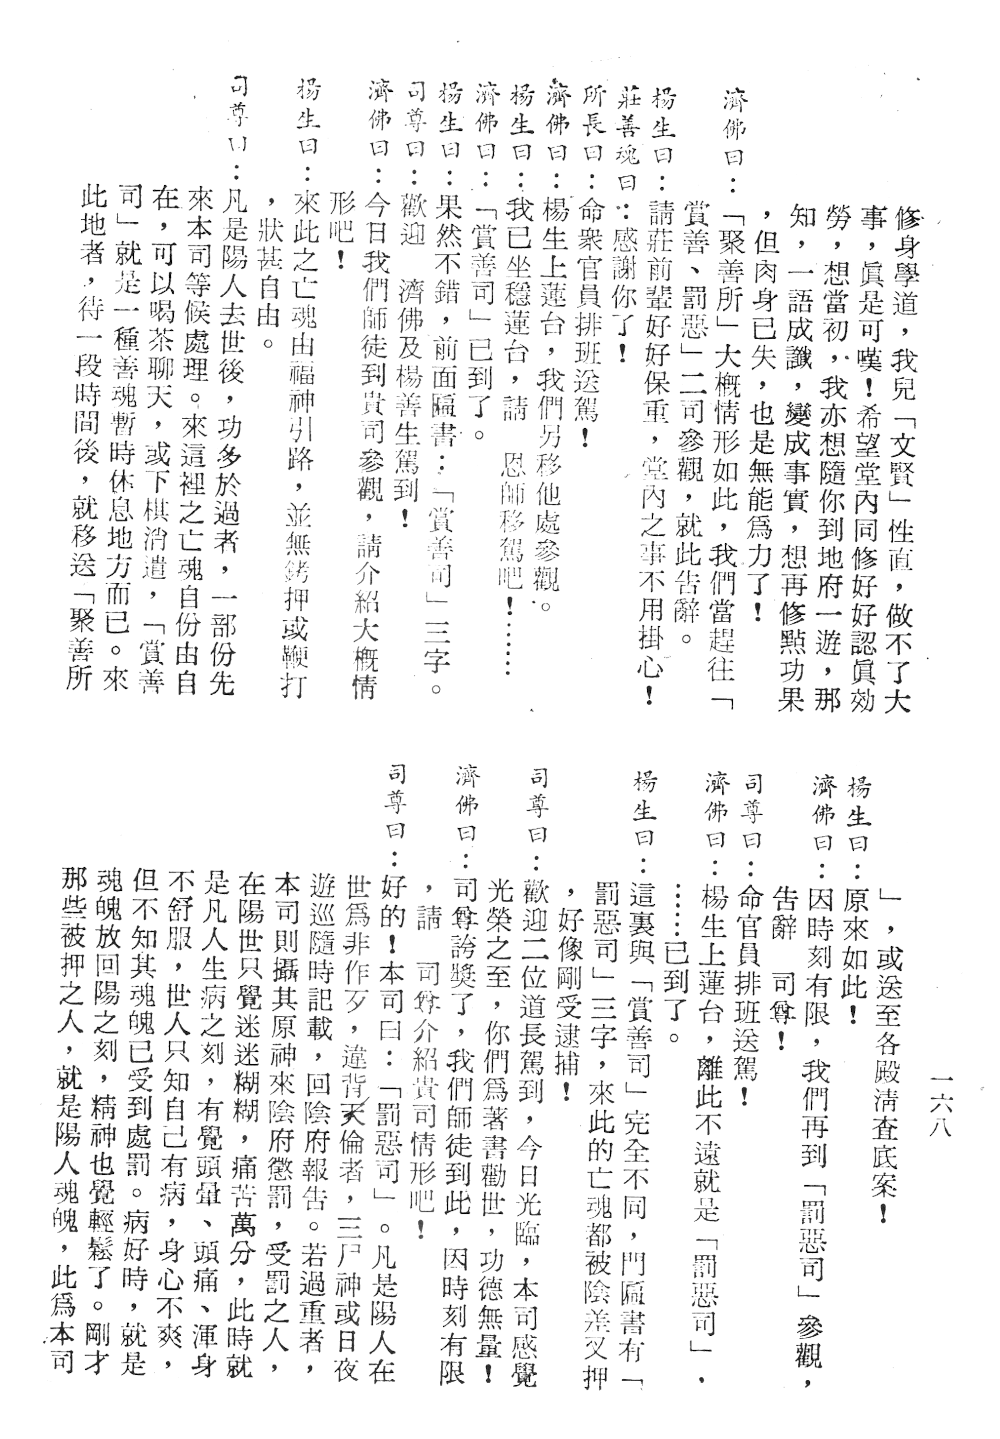 修身學道，我兒「文賢」性直，做不了大
事，眞是可嘆！希望堂內同修好好認眞効
勞，想當初，我亦想隨你到地府一遊，那
知，一語成讖，變成事實，想再修點功果
，但肉身已失，也是無能爲力了！
濟佛曰：「聚善所」大概情形如此，我們當趕往「
賞善、罰惡」二司參觀，就此告辭。
楊生曰：請莊前輩好好保重，堂內之事不用掛心！
莊善魂曰：感謝你了！
所長曰：命衆官員排班送駕！
濟佛曰：楊生上蓮台，我們另移他處參觀。
楊生曰：我已坐穩蓮台，請　恩師移駕吧！……
濟佛曰：「賞善司」已到了。
楊生曰：果然不錯，前面匾書：「賞善司」三字。
司尊曰：歡迎　濟佛及楊善生駕到！
濟佛曰：今日我們師徒到貴司參觀，請介紹大概情
形吧！
楊生曰：來此之亡魂由福神引路，並無銬押或鞭打
，狀甚自由。
司尊曰：凡是陽人去世後，功多於過者，一部份先
來本司等候處理。來這裡之亡魂自份由自
在，可以喝茶聊天，或下棋消遣，「賞善
司」就是一種善魂暫時休息地方而已。來
此地者，待一段時間後，就移送「聚善所
」，或送至各殿淸査底案！
楊生曰：原來如此！
濟佛曰：因時刻有限，我們再到「罰惡司」參觀，
告辭　司尊！
司尊曰：命官員排班送駕！
濟佛曰：楊生上蓮台，離此不遠就是「罰惡司」，
……已到了。
楊生曰：這裏與「賞善司」完全不同，門匾書有「
罰惡司」三字，來此的亡魂都被陰差叉押
，好像剛受逮捕！
司尊曰：歡迎二位道長駕到，今日光臨，本司感覺
光榮之至，你們爲著書勸世，功德無量！
濟佛曰：司尊誇獎了，我們師徒到此，因時刻有限
，請　司尊介紹貴司情形吧！
司尊曰：好的！本司曰：「罰惡司」。凡是陽人在
世爲非作歹，違背天倫者，三尸神或日夜
遊巡隨時記載，回陰府報告。若過重者，
本司則攝其原神來陰府懲罰，受罰之人，
在陽世只覺迷迷糊糊，痛苦萬分，此時就
是凡人生病之刻，有覺頭暈、頭痛、渾身
不舒服，世人只知自己有病，身心不爽，
但不知其魂魄已受到處罰。病好時，就是
魂魄放回陽之刻，精神也覺輕鬆了。剛才
那些被押之人，就是陽人魂魄，此爲本司
一六八